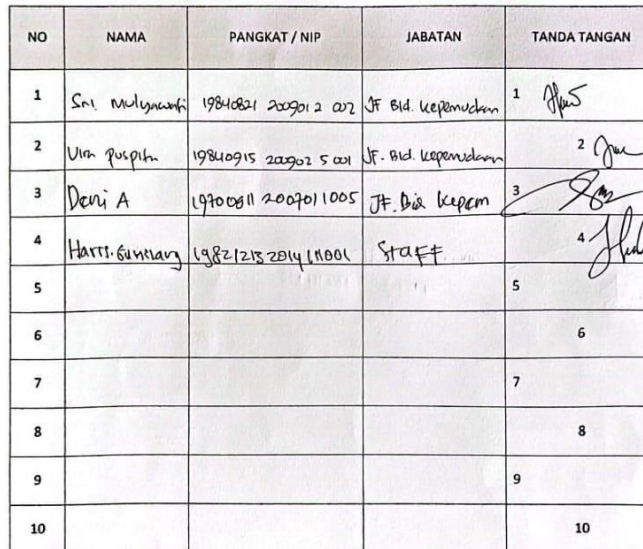 NO NAMA PANGKAT / NIP JABATAN TANDA TANGAN
1 Sri. Mulyawati 19840821 200901 2 002 JF Bid. Kepemudaan 1
2 Vira Puspita 19840915 200902 5 001 JF. Bid. Kepemudaan 2
3 Deni A 19700811 2007011005 JF. Bid Kepem 3
4 Harris. Gunilang 198212132014111001 Staff 4
5 5
6 6
7 7
8 8
9 9
10 10